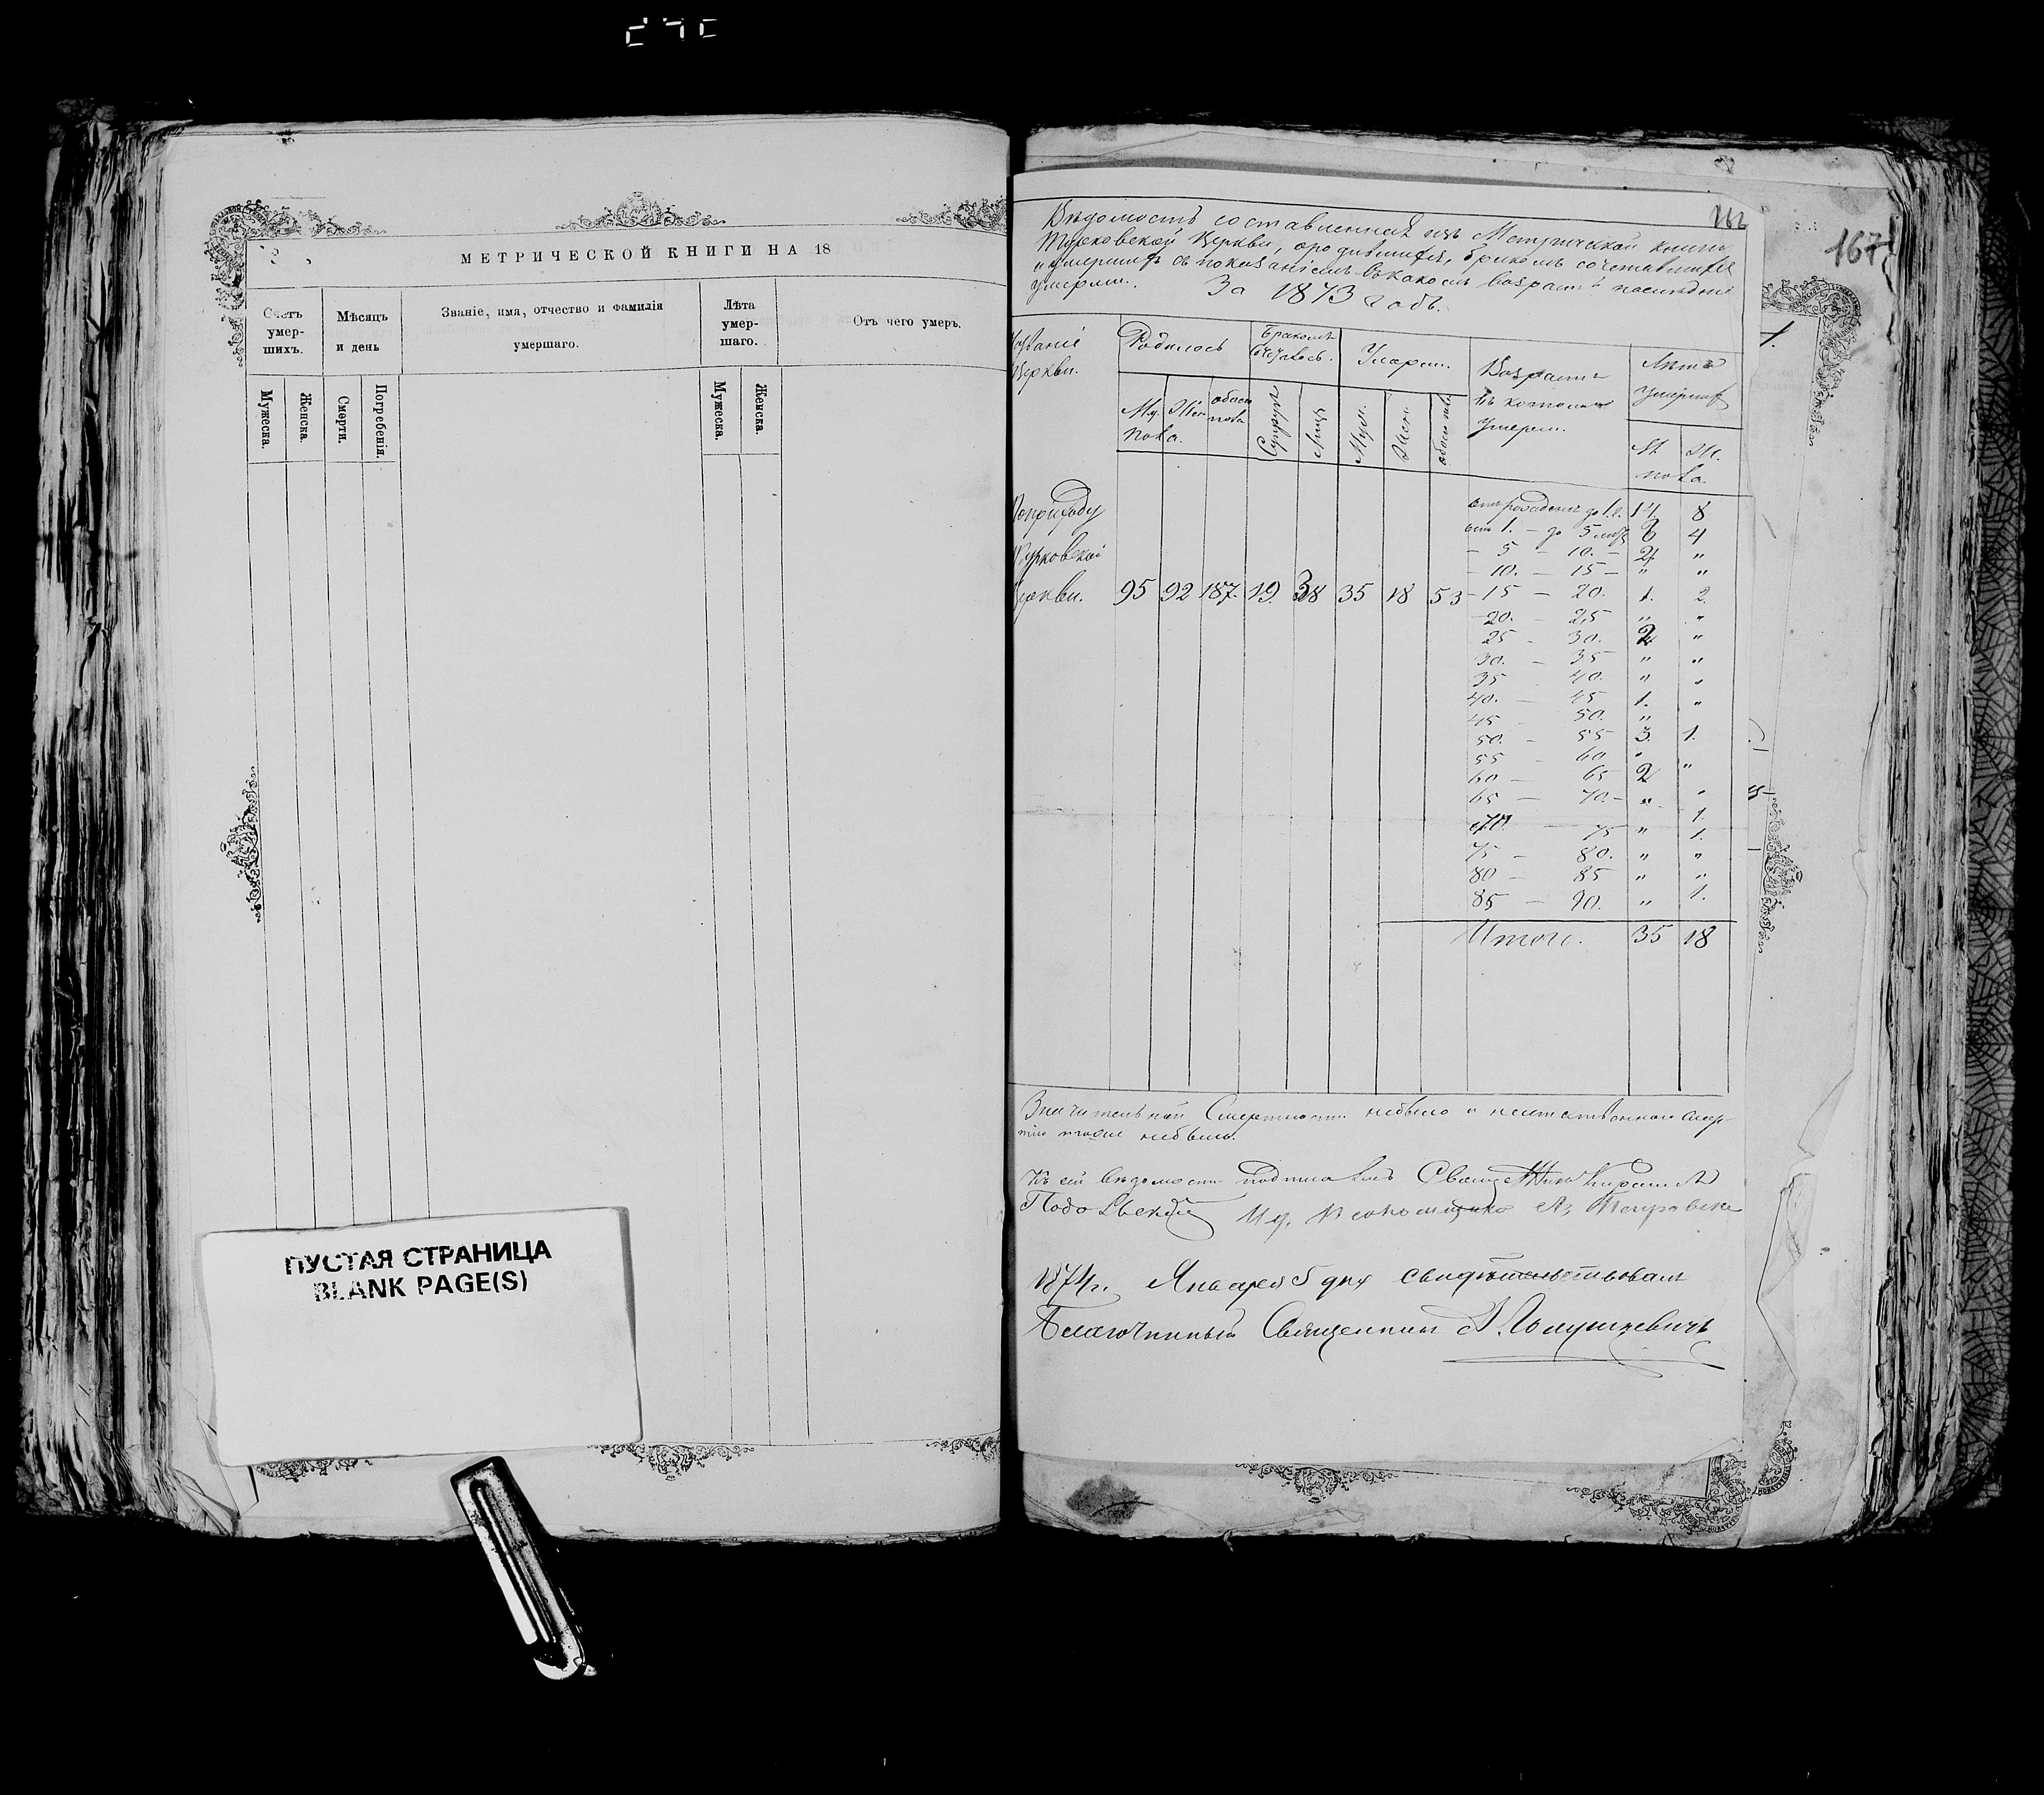 МЕТРИЧЕСКОЙ КНИГИ НА 18
Счетъ умер-шихъ.
Мѣсяцъ и день
Званіе, имя, отчество и фамилія умершаго.
Лѣта умер-шаго.
Отъ чего умеръ.
Мужеска.
Женска.
Смерти.
Погребенія.
Мужеска.
Женска.
ПУСТАЯ СТРАНИЦА
BLANK PAGE(S)
167
Вѣдомость составленная изъ Метрической книги
Турковской Церкви, о родившихся, бракомъ сочетавшихся
и умершихъ съ показаніемъ въ какомъ возрастѣ послѣдніе
умерли. За 1873 годъ.
Церкви.
Родилось
Бракомъ
Умерли.
Возрастъ
въ которомъ
умерли.
Лѣта
умершихъ
Му. Жен
пола.
обоего
пола
Супруг
Лицъ
Муж.
Жен.
обоего пола
М. Ж.
пола.
По приходу
Турковской
Церкви. 95 92 187. 19. 38 35 18 53
отъ рожденія до 1 г. 14. 8
отъ 1. — до 5 лѣтъ 4
- 5 - 10. - 2. "
- 10. — 15 — " "
- 15 — 20. 1. 2.
20. - 25 " "
25 - 30. 2 "
30. — 35 " "
35 40. " "
40. - 45 1. "
45 - 50. "
50. - 55 3. 1.
55 - 60 " "
60 — 65 2
65 — 70. — " "
1.
70. — 75 " 1.
75 — 80. " "
80 — 85 " "
85 — 90. " 1.
Итого. 35 18
Значительной Смертности небыло и неестественной смер-
ти тоже небыло.
Къ сей вѣдомости подписались
1874 г. Января 5 дня свидѣтельствовалъ
Благочинный Священникъ